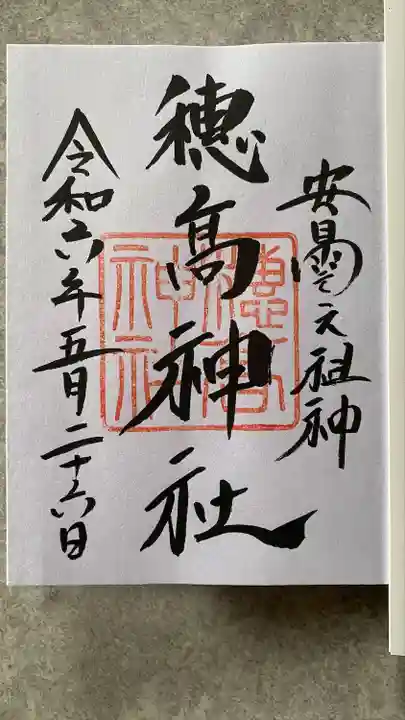 安曇之元祖神
穂髙神社
令和六年五月二十六日
穂高神社